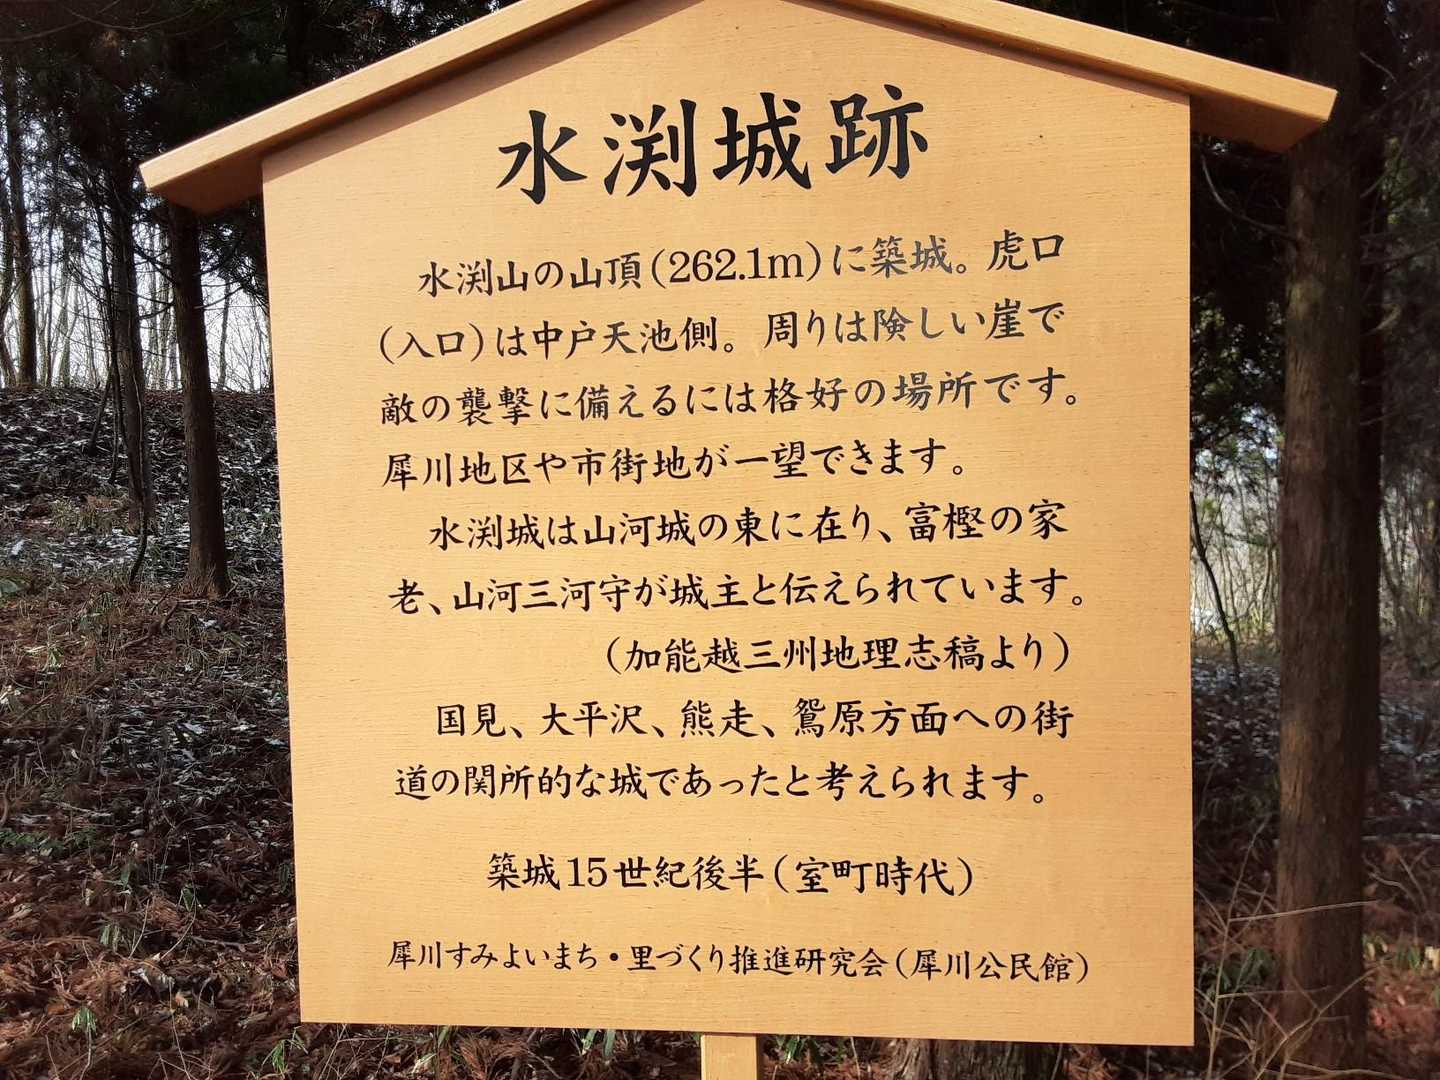 水渕城跡
水渕山の山頂(262.1m)に築城。虎口
(入口)は中戸天池側。周りは険しい崖で
敵の襲撃に備えるには格好の場所です。
犀川地区や市街地が一望できます。
水渕城は山河城の東に在り、富樫の家
老、山河三河守が城主と伝えられています。
(加能越三州地理志稿より)
国見、大平沢、熊走、鴛原方面への街
道の関所的な城であったと考えられます。
築城15世紀後半(室町時代)
犀川すみよいまち・里づくり推進研究会(犀川公民館)